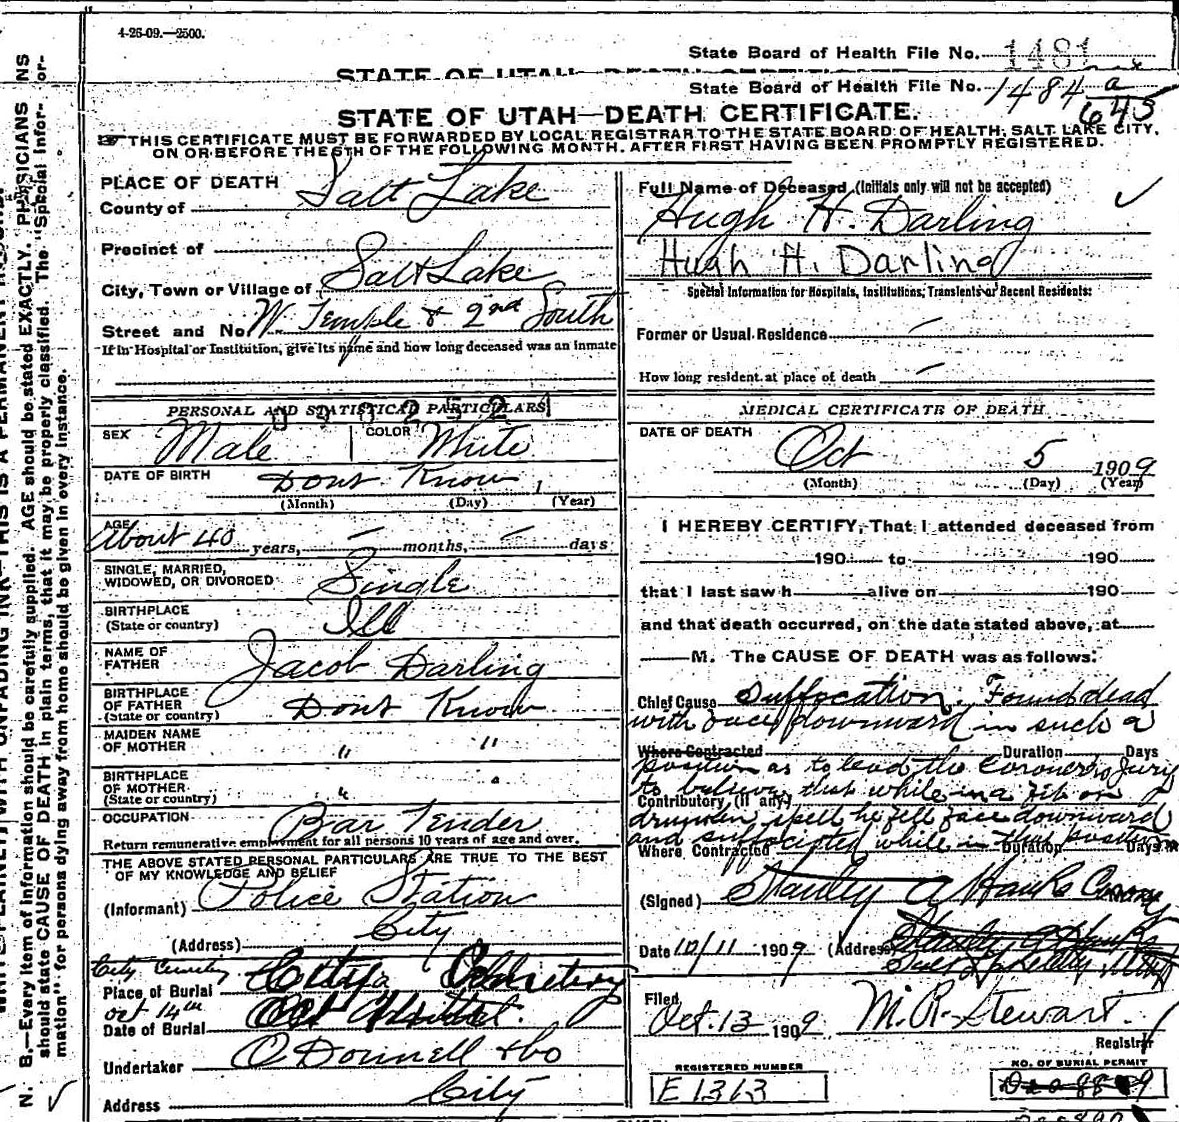 4-26-09.—2500.
State Board of Health File No. 1481
STATE OF UTAH—DEATH CERTIFICATE
State Board of Health File No. 1484 a
645
STATE OF UTAH—DEATH CERTIFICATE.
☞ THIS CERTIFICATE MUST BE FORWARDED BY LOCAL REGISTRAR TO THE STATE BOARD OF HEALTH, SALT LAKE CITY,
ON OR BEFORE THE 5TH OF THE FOLLOWING MONTH. AFTER FIRST HAVING BEEN PROMPTLY REGISTERED.
PLACE OF DEATH
County of Salt Lake
Precinct of
City, Town or Village of Salt Lake
Street and No. W. Temple & 2nd South
If in Hospital or Institution, give its name and how long deceased was an inmate
PERSONAL AND STATISTICAL PARTICULARS
SEX Male COLOR White
DATE OF BIRTH Dont Know 1
(Month) (Day) (Year)
AGE About 40 years, — months, — days
SINGLE, MARRIED,
WIDOWED, OR DIVORCED Single
BIRTHPLACE
(State or country) Ill
NAME OF
FATHER Jacob Darling
BIRTHPLACE
OF FATHER
(State or country) Dont Know
MAIDEN NAME
OF MOTHER " "
BIRTHPLACE
OF MOTHER
(State or country) " "
OCCUPATION Bar Tender
Return remunerative employment for all persons 10 years of age and over.
THE ABOVE STATED PERSONAL PARTICULARS ARE TRUE TO THE BEST
OF MY KNOWLEDGE AND BELIEF
(Informant) Police Station
(Address) City
City Cemetery
Place of Burial
Oct 14th
Date of Burial
Undertaker O'Donnell & Co
Address City
Full Name of Deceased (Initials only will not be accepted)
Hugh H. Darling
Hugh H. Darling
Special Information for Hospitals, Institutions, Transients or Recent Residents:
Former or Usual Residence —
How long resident at place of death —
MEDICAL CERTIFICATE OF DEATH
DATE OF DEATH Oct 5 1909
(Month) (Day) (Year)
I HEREBY CERTIFY, That I attended deceased from
190 to 190
that I last saw h alive on 190
and that death occurred, on the date stated above, at
M. The CAUSE OF DEATH was as follows:
Chief Cause Suffocation. Found dead
with face downward in such a
Where Contracted Duration Days
position as to lead the Coroners Jury
to believe that while in a fit or
Contributory (if any)
drunken spell he fell face downward
and suffocated while in that position
Where Contracted Duration Days
(Signed) Stanley A Hanks
Date 10/11 1909 (Address)
Filed
Oct. 13 1909 M. R. Stewart.
Registrar
REGISTERED NUMBER
E 1313
NO. OF BURIAL PERMIT
N. B.—Every item of information should be carefully supplied. AGE should be stated EXACTLY. PHYSICIANS
should state CAUSE OF DEATH in plain terms, that it may be properly classified. The "Special Infor-
mation" for persons dying away from home should be given in every instance.